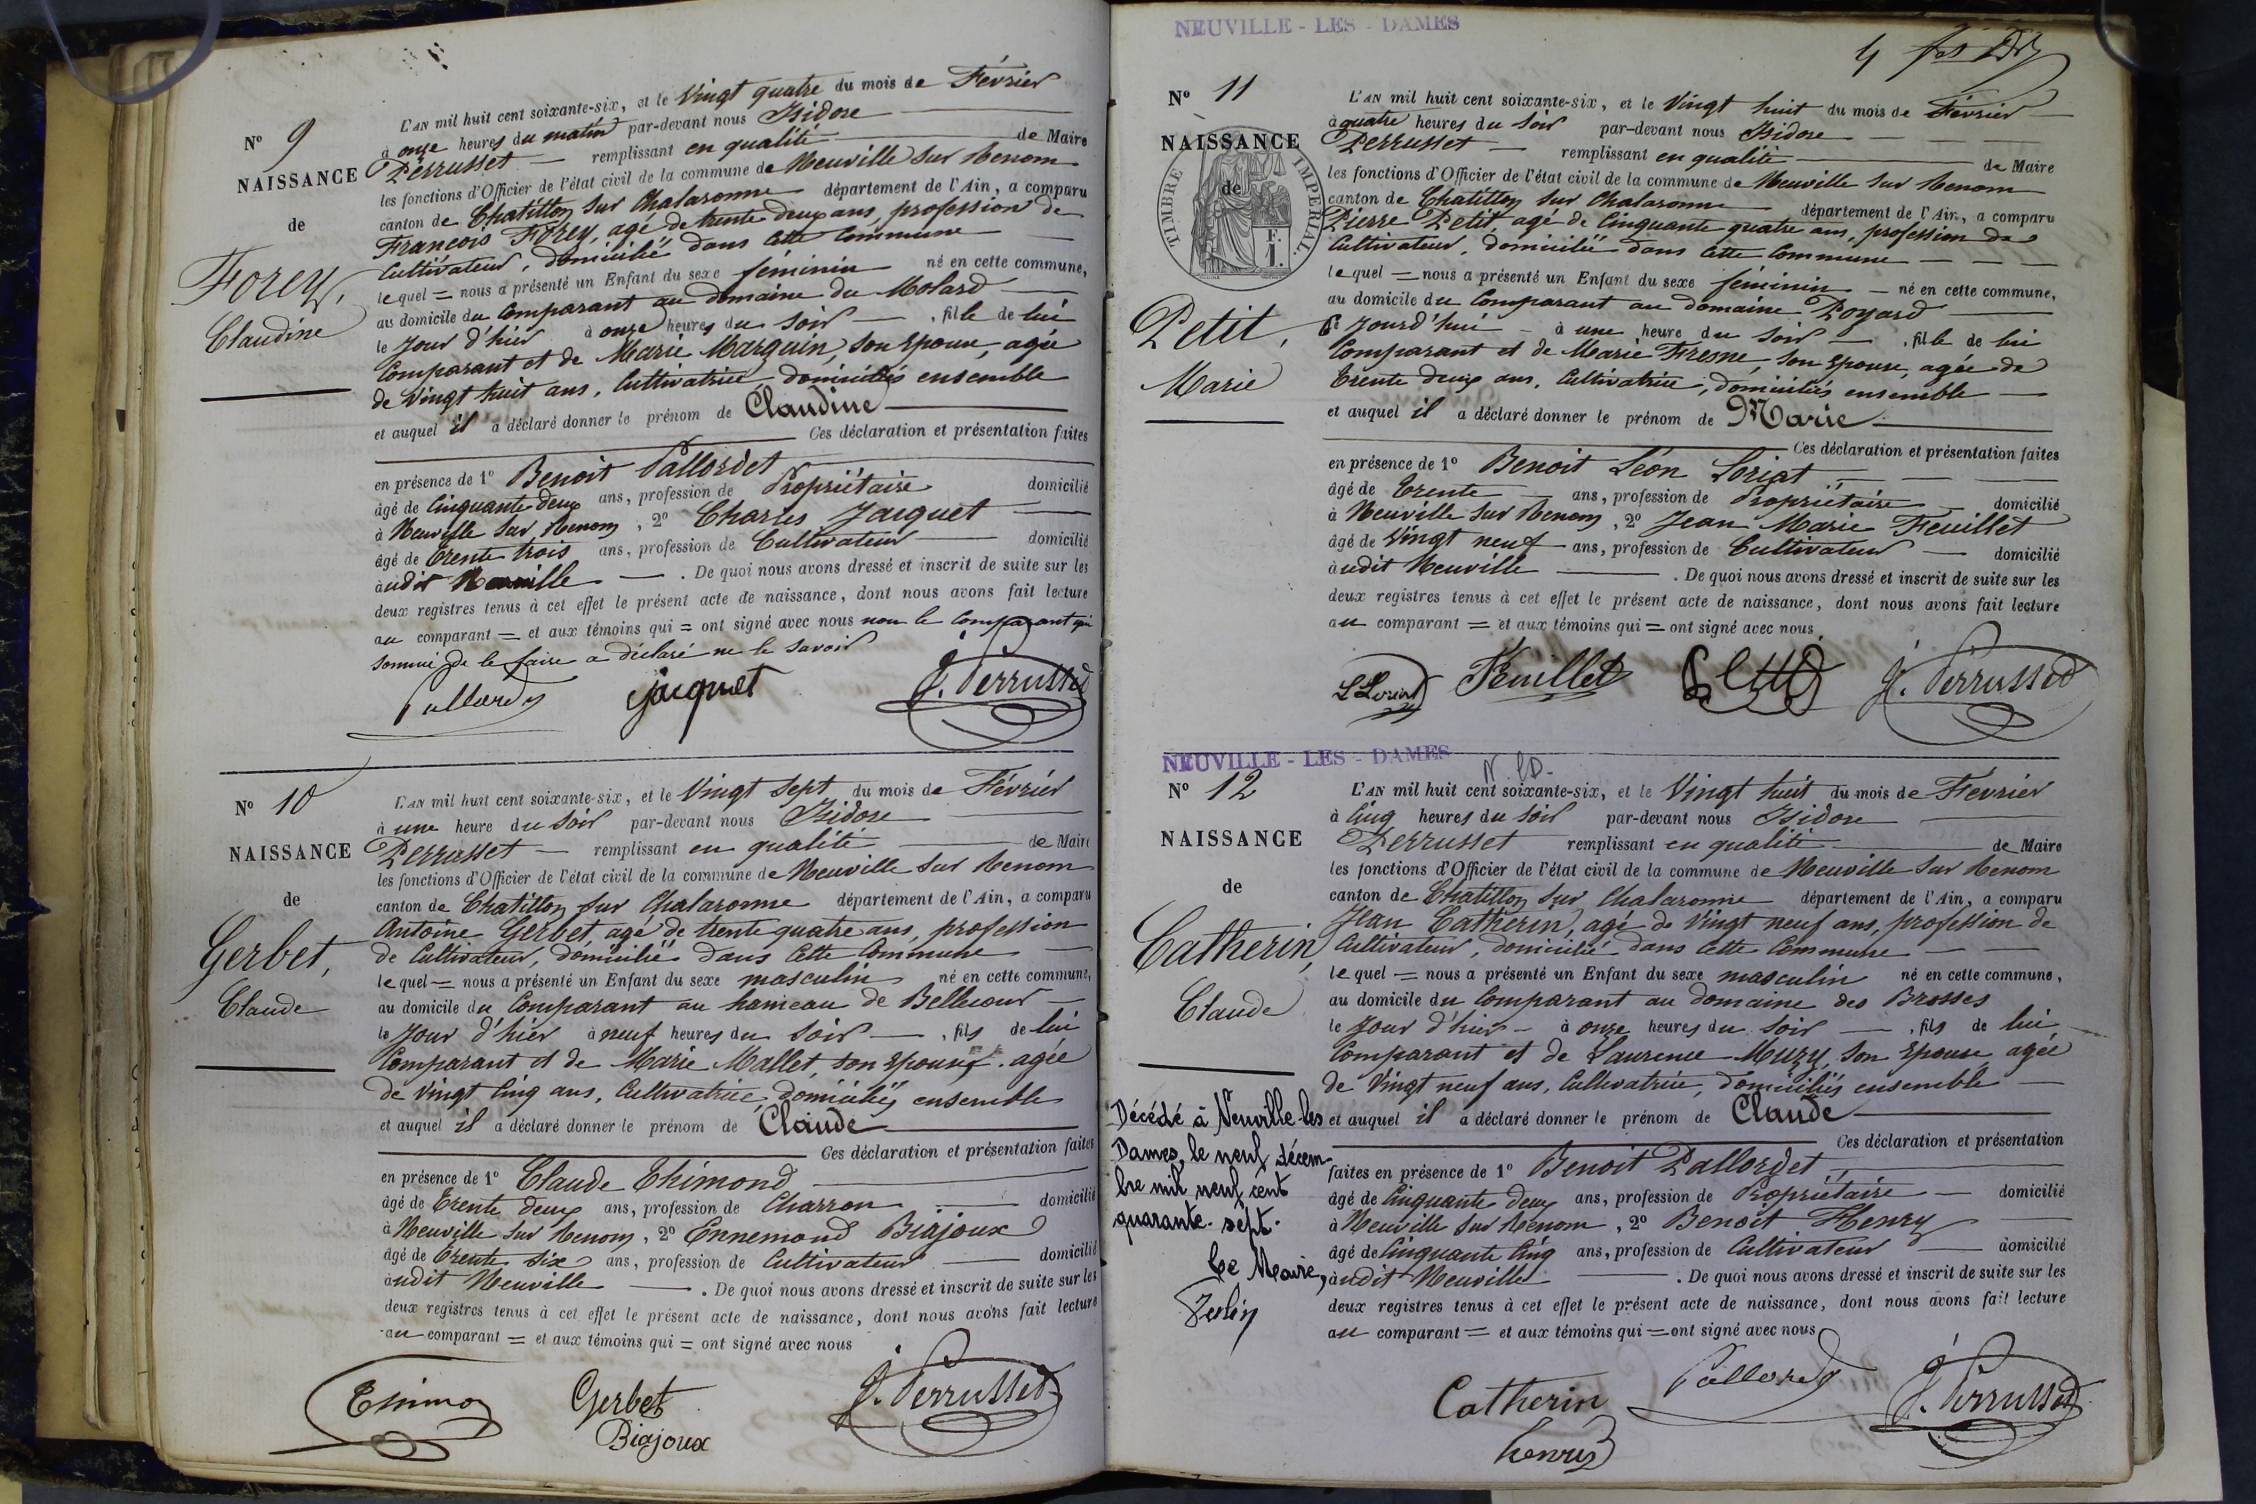 N° 9
NAISSANCE
de
Forey,
Claudine
L'AN mil huit cent soixante-six, et le Vingt quatre du mois de Février
à onze heures du matin par-devant nous Isidore
Perrusset remplissant en qualité de Maire
les fonctions d'Officier de l'état civil de la commune de Neuville sur Renom
canton de Chatillon sur Chalaronne département de l'Ain, a comparu
François Forey, agé de trente deux ans, profession de
Cultivateur, domicilié dans cette Commune
lequel = nous a présenté un Enfant du sexe féminin né en cette commune,
au domicile du Comparant au domaine du Molard
le Jour d'hier à onze heures du soir, fille de lui
Comparant et de Marie Marguin, son Epouse, agée
de Vingt huit ans, Cultivatrice domiciliés ensemble
et auquel il a déclaré donner le prénom de Claudine
Ces déclaration et présentation faites
en présence de 1° Benoit Pallordet
âgé de Cinquante deux ans, profession de Propriétaire domicilié
à Neuville sur Renom, 2° Charles Jacquet
âgé de trente trois ans, profession de Cultivateur domicilié
audit Neuville. De quoi nous avons dressé et inscrit de suite sur les
deux registres tenus à cet effet le présent acte de naissance, dont nous avons fait lecture
au comparant = et aux témoins qui = ont signé avec nous non le Comparant qui
sommé de le faire a déclaré ne le savoir
Pallordet Jacquet J. Perrusset
N° 10
NAISSANCE
de
Gerbet,
Claude
L'AN mil huit cent soixante-six, et le Vingt sept du mois de Février
à une heure du soir par-devant nous Isidore
Perrusset remplissant en qualité de Maire
les fonctions d'Officier de l'état civil de la commune de Neuville sur Renom
canton de Chatillon sur Chalaronne département de l'Ain, a comparu
Antoine Gerbet, agé de trente quatre ans, profession
de Cultivateur, domicilié dans cette Commune
lequel = nous a présenté un Enfant du sexe masculin né en cette commune,
au domicile du Comparant au hameau de Bellecour
le Jour d'hier à neuf heures du soir, fils de lui
Comparant et de Marie Mallet, son Epouse, agée
de Vingt Cinq ans, Cultivatrice, domiciliés ensemble
et auquel il a déclaré donner le prénom de Claude
Ces déclaration et présentation faites
en présence de 1° Claude Thimond
âgé de trente deux ans, profession de Charron domicilié
à Neuville sur Renom, 2° Ennemond Biajoux
âgé de trente six ans, profession de Cultivateur domicilié
audit Neuville. De quoi nous avons dressé et inscrit de suite sur les
deux registres tenus à cet effet le présent acte de naissance, dont nous avons fait lecture
au comparant = et aux témoins qui = ont signé avec nous
Thimon Gerbet J. Perrusset
Biajoux
NEUVILLE - LES - DAMES
4
N° 11
NAISSANCE
de
TIMBRE IMPERIAL.
Petit,
Marie
L'AN mil huit cent soixante-six, et le Vingt huit du mois de Février
à quatre heures du soir par-devant nous Isidore
Perrusset remplissant en qualité de Maire
les fonctions d'Officier de l'état civil de la commune de Neuville sur Renom
canton de Chatillon sur Chalaronne département de l'Ain, a comparu
Pierre Petit, agé de Cinquante quatre ans, profession de
Cultivateur, domicilié dans cette Commune
lequel = nous a présenté un Enfant du sexe féminin né en cette commune,
au domicile du Comparant au domaine Poyard
Jourd'hui à une heure du soir, fille de lui
Comparant et de Marie Fresne, son Epouse, agée de
trente deux ans, Cultivatrice, domiciliés ensemble
et auquel il a déclaré donner le prénom de Marie
Ces déclaration et présentation faites
en présence de 1° Benoit Léon Loriat
âgé de trente ans, profession de Propriétaire domicilié
à Neuville sur Renom, 2° Jean Marie Feuillet
âgé de Vingt neuf ans, profession de Cultivateur domicilié
audit Neuville. De quoi nous avons dressé et inscrit de suite sur les
deux registres tenus à cet effet le présent acte de naissance, dont nous avons fait lecture
au comparant = et aux témoins qui = ont signé avec nous
L Loriat Feuillet Petit J. Perrusset
NEUVILLE - LES - DAMES
N. LD.
N° 12
NAISSANCE
de
Catherin,
Claude
L'AN mil huit cent soixante-six, et le Vingt huit du mois de Février
à Cinq heures du soir par-devant nous Isidore
Perrusset remplissant en qualité de Maire
les fonctions d'Officier de l'état civil de la commune de Neuville sur Renom
canton de Chatillon sur Chalaronne département de l'Ain, a comparu
Jean Catherin, agé de Vingt neuf ans, profession de
Cultivateur, domicilié dans cette Commune
lequel = nous a présenté un Enfant du sexe masculin né en cette commune,
au domicile du Comparant au domaine des Brosses
le Jour d'hier à onze heures du soir, fils de lui
Comparant et de Laurence Muzy, son Epouse agée
de Vingt neuf ans, Cultivatrice, domiciliés ensemble
et auquel il a déclaré donner le prénom de Claude
Ces déclaration et présentation
faites en présence de 1° Benoit Pallordet
âgé de Cinquante deux ans, profession de Propriétaire domicilié
à Neuville sur Renom, 2° Benoit Henry
âgé de Cinquante Cinq ans, profession de Cultivateur domicilié
audit Neuville. De quoi nous avons dressé et inscrit de suite sur les
deux registres tenus à cet effet le présent acte de naissance, dont nous avons fait lecture
au comparant = et aux témoins qui = ont signé avec nous
Décédé à Neuville-les
Dames, le neuf décem-
bre mil neuf cent
quarante-sept.
Le Maire,
Catherin Pallordet J. Perrusset
henry